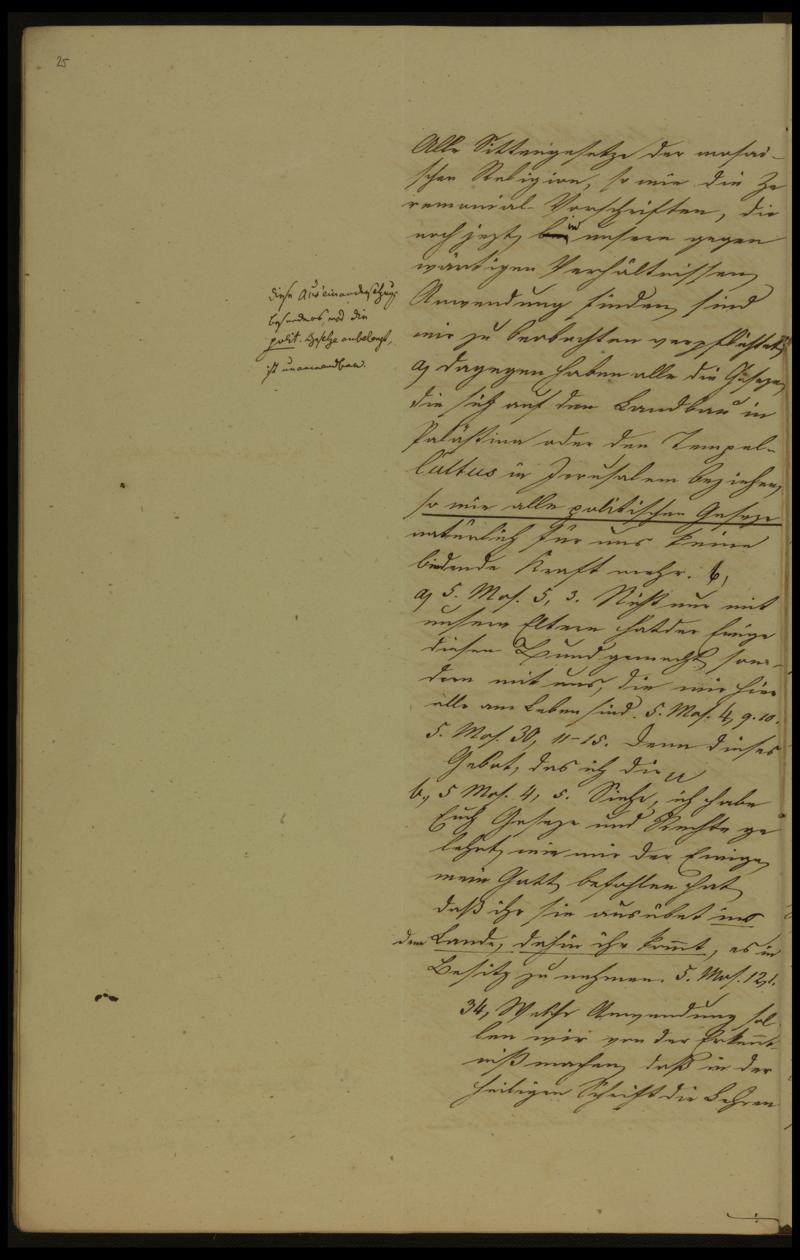 25
Alle Sittengesetze der mosai-
schen Religion, so wie die Ze
remonial-Vorschriften, die
noch jezt in unsern gegen
wärtigen Verhältnissen
Anwendung finden, sind
wir zu beobachten verpflichtet,
a) dagegen haben alle die Geseze,
die sich auf den Landbau in
Palästina oder den Tempel-
Cultus in Jerusalem beziehen,
so wie alle politischen Geseze
natürlich für uns keine
bindende Kraft mehr. b,
a) 5. Mos. 5, 3. Nicht nur mit
unsern Eltern hat der Ewige
diesen Bund gemacht, son-
dern mit uns, die wir hier
alle am Leben sind. 5. Mos. 4, 9. 10.
5. Mos. 30, 11-15. Denn dieses
Gebot, das ich dir
b, 5 Mos. 4, 5. Siehe, ich habe
Euch Geseze und Rechte ge
lehrt, wie mir der Ewige,
mein Gott, befohlen hat,
daß ihr sie ausübet
dem Lande, dahin ihr kommt, es in
Besitz zu nehmen. 5. Mos. 12, 1.
34, Welche Anwendung sol
len wir von der Erkennt-
niß machen, daß in der
heiligen Schrift die Lehren
diese Auseinandersetzung,
besonders was die
polit. Geseze anbelangt,
ist unanwendbar.